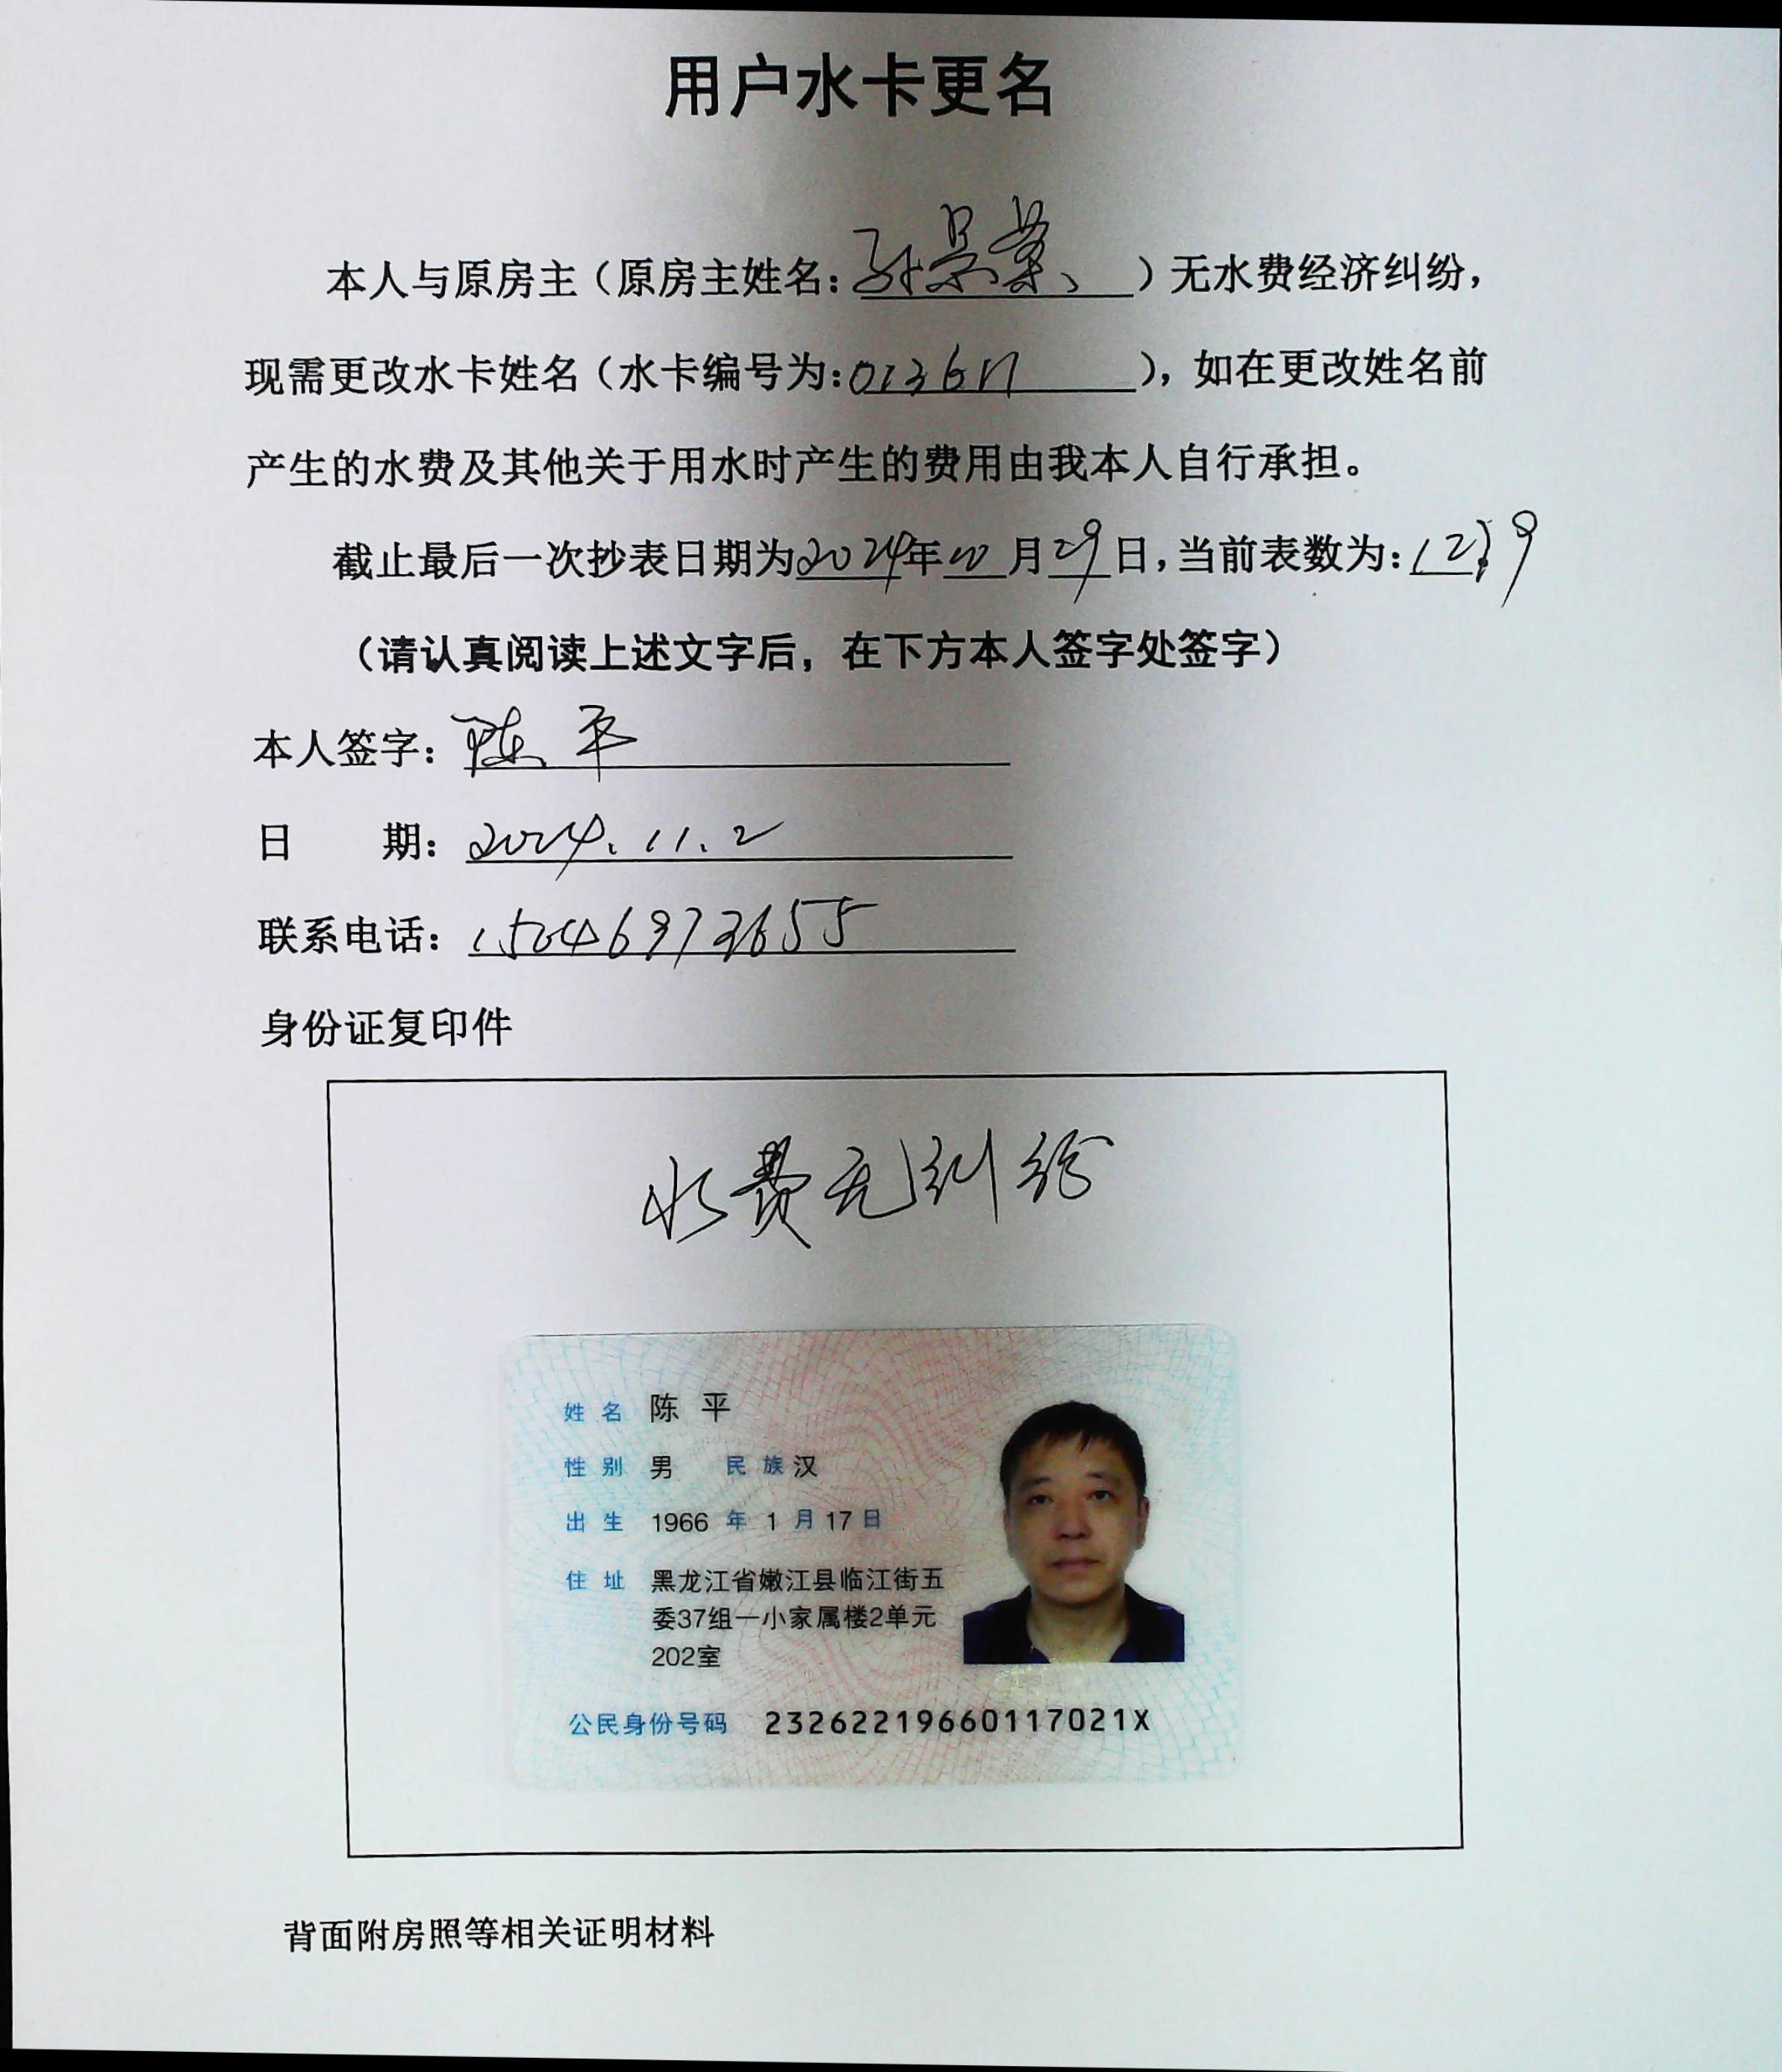 用户水卡更名
本人与原房主（原房主姓名：孙景荣）无水费经济纠纷，
现需更改水卡姓名（水卡编号为：），如在更改姓名前
产生的水费及其他关于用水时产生的费用由我本人自行承担。
截止最后一次抄表日期为2024年10月29日，当前表数为：
（请认真阅读上述文字后，在下方本人签字处签字）
本人签字：陈平
日 期：2024.11.2
联系电话：15046973655
身份证复印件
水费无纠纷
姓名 陈平
性别 男 民族 汉
出生 1966 年 1 月 17 日
住址 黑龙江省嫩江县临江街五
委37组一小家属楼2单元
202室
公民身份号码 23262219660117021X
背面附房照等相关证明材料